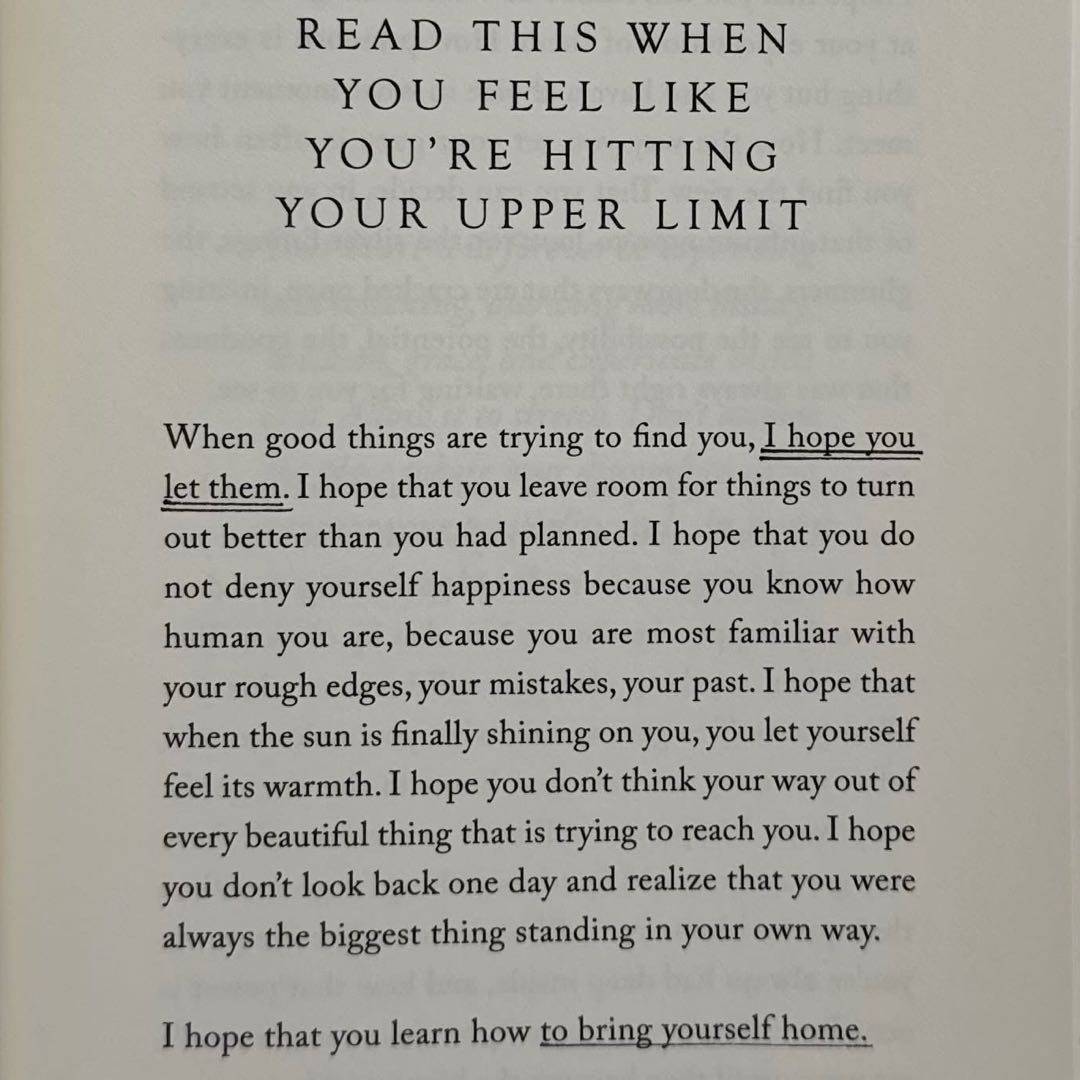 READ THIS WHEN
YOU FEEL LIKE
YOU’RE HITTING
YOUR UPPER LIMIT
When good things are trying to find you, I hope you
let them. I hope that you leave room for things to turn
out better than you had planned. I hope that you do
not deny yourself happiness because you know how
human you are, because you are most familiar with
your rough edges, your mistakes, your past. I hope that
when the sun is finally shining on you, you let yourself
feel its warmth. I hope you don’t think your way out of
every beautiful thing that is trying to reach you. I hope
you don’t look back one day and realize that you were
always the biggest thing standing in your own way.
I hope that you learn how to bring yourself home.